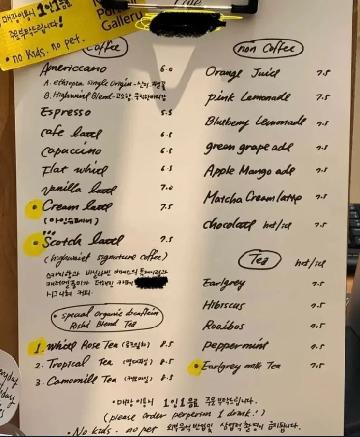 매장이용시 1인1음료
주문부탁드립니다!
• no kids. no pet.
Gallery
Coffee
Americano 6.0
A. Ethiopia Single Origin
B. Highwaist Blend
Espresso 5.5
cafe latte 6.5
Capuccino 6.5
Flat whitd 6.5
Vanilla latte 7.0
• Cream latte 7.5
(아인슈페너)
• Scotch latte 7.5
(highwaist signature coffee)
시그니쳐 커피.
• special organic decaffein
Blend Tea
1. Whitd Rose Tea 8.5
2. Tropical Tea 8.5
3. Camomile Tea 8.5
non Coffee
Orange Juice 7.5
pink Lemonade 7.5
Blueberry Lemonade 7.5
green grape ade 7.5
Apple Mango ade 7.5
Matcha Cream latte 7.5
Chocolate hot/ice 7.5
Tea hot/ice
Earlgrey 7.5
Hibiscus 7.5
Rooibos 7.5
peppermint 7.5
• Earlgrey milk Tea 7.5
• 매장 이용시 1인 1음료 주문 부탁드립니다.
(please order perperson 1 drink!)
• No kids. no pet 상업적 촬영이 금지됩니다.